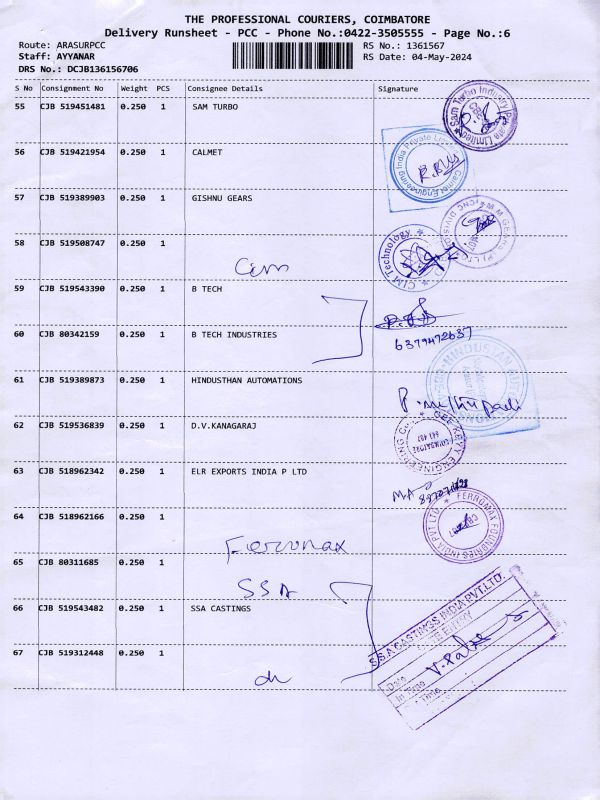 THE PROFESSIONAL COURIERS, COIMBATORE
Delivery Runsheet - PCC - Phone No.:0422-3505555 - Page No.:6
Route: ARASURPCC RS No.: 1361567
Staff: AYYANAR RS Date: 04-May-2024
DRS No.: DCJB136156706
S No Consignment No Weight PCS Consignee Details Signature
55 CJB 519451481 0.250 1 SAM TURBO
Sam Turbo Industry Private Limited
56 CJB 519421954 0.250 1 CALMET
Calmet Engineering India Private Limited
57 CJB 519389903 0.250 1 GISHNU GEARS
58 CJB 519508747 0.250 1
Cim
CIM Technology
59 CJB 519543390 0.250 1 B TECH
60 CJB 80342159 0.250 1 B TECH INDUSTRIES
6379472637
61 CJB 519389873 1 0.250 HINDUSTHAN AUTOMATIONS
62 CJB 519536839 0.250 1 D.V.KANAGARAJ
63 CJB 518962342 0.250 1 ELR EXPORTS INDIA P LTD
64 CJB 518962166 0.250 1
FERROMAX FOUNDRIES INDIA PVT LTD
Ferromax
65 CJB 80311685 0.250 1
SSA
66 CJB 519543482 0.250 1 SSA CASTINGS
S.S.A CASTINGS INDIA PVT.LTD.
67 CJB 519312448 0.250 1